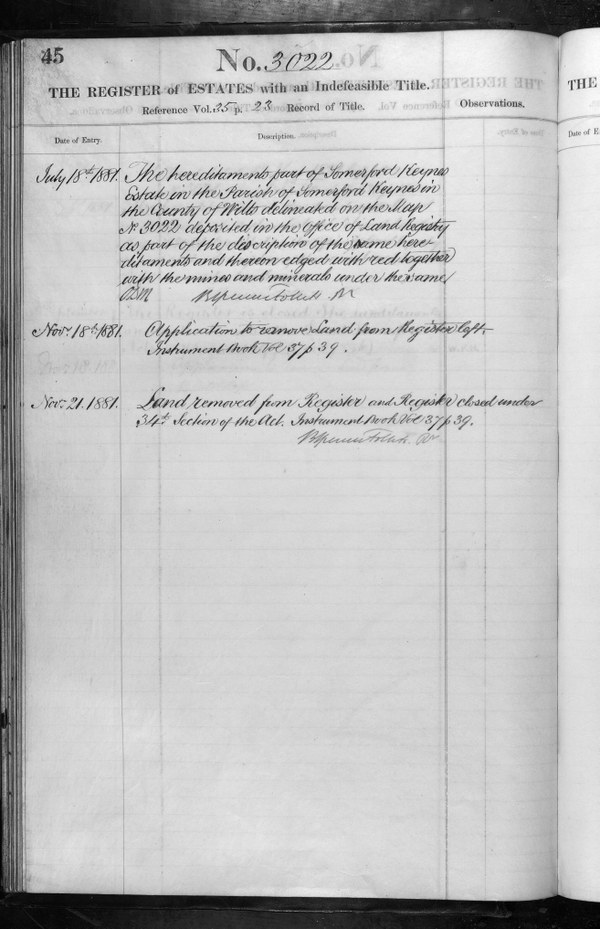 45
No. 3022
THE REGISTER of ESTATES with an Indefeasible Title.
Reference Vol. 35 p. 23 Record of Title.
Observations.
Date of Entry.
Description.
July 18th 1881. The hereditaments part of Somerford Keynes
Estate in the Parish of Somerford Keynes in
the County of Wilts delineated on the Map
No. 3022 deposited in the Office of Land Registry
as part of the discription of the same here-
ditaments and thereon edged with red together
with the mines and minerals under the same
Novr. 18th 1881. Application to remove Land from Register left
Instrument Book Vol 37 p 39.
Novr. 21. 1881. Land removed from Register and Register closed under
34th Section of the Act. Instrument Book Vol 37 p 39.
THE
Date of E